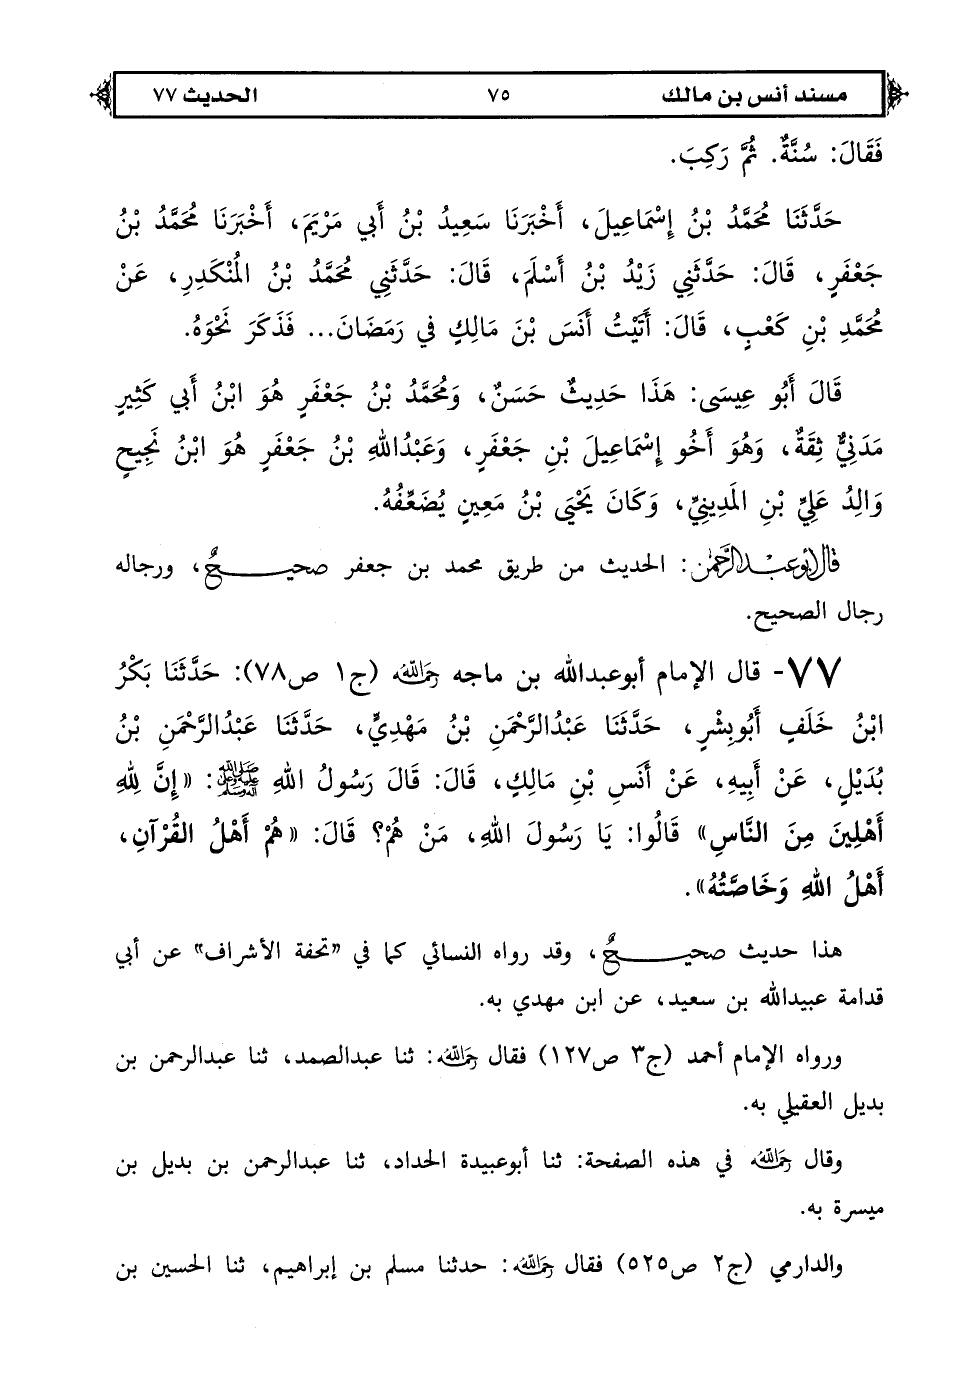 مسند أنس بن مالك ٧٥ الحديث ٧٧
فَقَالَ: سُنَّةٌ. ثُمَّ رَكِبَ.
حَدَّثَنَا مُحَمَّدُ بْنُ إِسْمَاعِيلَ، أَخْبَرَنَا سَعِيدُ بْنُ أَبِي مَرْيَمَ، أَخْبَرَنَا مُحَمَّدُ بْنُ
جَعْفَرٍ، قَالَ: حَدَّثَنِي زَيْدُ بْنُ أَسْلَمَ، قَالَ: حَدَّثَنِي مُحَمَّدُ بْنُ المُنْكَدِرِ، عَنْ
مُحَمَّدِ بْنِ كَعْبٍ، قَالَ: أَتَيْتُ أَنَسَ بْنَ مَالِكٍ فِي رَمَضَانَ... فَذَكَرَ نَحْوَهُ.
قَالَ أَبُو عِيسَى: هَذَا حَدِيثٌ حَسَنٌ، وَمُحَمَّدُ بْنُ جَعْفَرٍ هُوَ ابْنُ أَبِي كَثِيرٍ
مَدَنِيٌّ ثِقَةٌ، وَهُوَ أَخُو إِسْمَاعِيلَ بْنِ جَعْفَرٍ، وَعَبْدُاللهِ بْنُ جَعْفَرٍ هُوَ ابْنُ نَجِيحٍ
وَالِدُ عَلِيِّ بْنِ المَدِينِيِّ، وَكَانَ يَحْيَى بْنُ مَعِينٍ يُضَعِّفُهُ.
قال أبو عبد الرحمن: الحديث من طريق محمد بن جعفر صحيـــــحٌ، ورجاله
رجال الصحيح.
٧٧- قال الإمام أبوعبدالله بن ماجه رحمه الله (ج١ ص٧٨): حَدَّثَنَا بَكْرُ
ابْنُ خَلَفٍ أَبُوبِشْرٍ، حَدَّثَنَا عَبْدُالرَّحْمَنِ بْنُ مَهْدِيٍّ، حَدَّثَنَا عَبْدُالرَّحْمَنِ بْنُ
بُدَيْلٍ، عَنْ أَبِيهِ، عَنْ أَنَسِ بْنِ مَالِكٍ، قَالَ: قَالَ رَسُولُ اللهِ ﷺ: «إِنَّ لِلهِ
أَهْلِينَ مِنَ النَّاسِ» قَالُوا: يَا رَسُولَ اللهِ، مَنْ هُمْ؟ قَالَ: «هُمْ أَهْلُ القُرْآنِ،
أَهْلُ اللهِ وَخَاصَّتُهُ».
هذا حديث صحيـــــحٌ، وقد رواه النسائي كما في "تحفة الأشراف" عن أبي
قدامة عبيدالله بن سعيد، عن ابن مهدي به.
ورواه الإمام أحمد (ج٣ ص١٢٧) فقال رحمه الله: ثنا عبدالصمد، ثنا عبدالرحمن بن
بديل العقيلي به.
وقال رحمه الله في هذه الصفحة: ثنا أبوعبيدة الحداد، ثنا عبدالرحمن بن بديل بن
ميسرة به.
والدارمي (ج٢ ص٥٢٥) فقال رحمه الله: حدثنا مسلم بن إبراهيم، ثنا الحسين بن